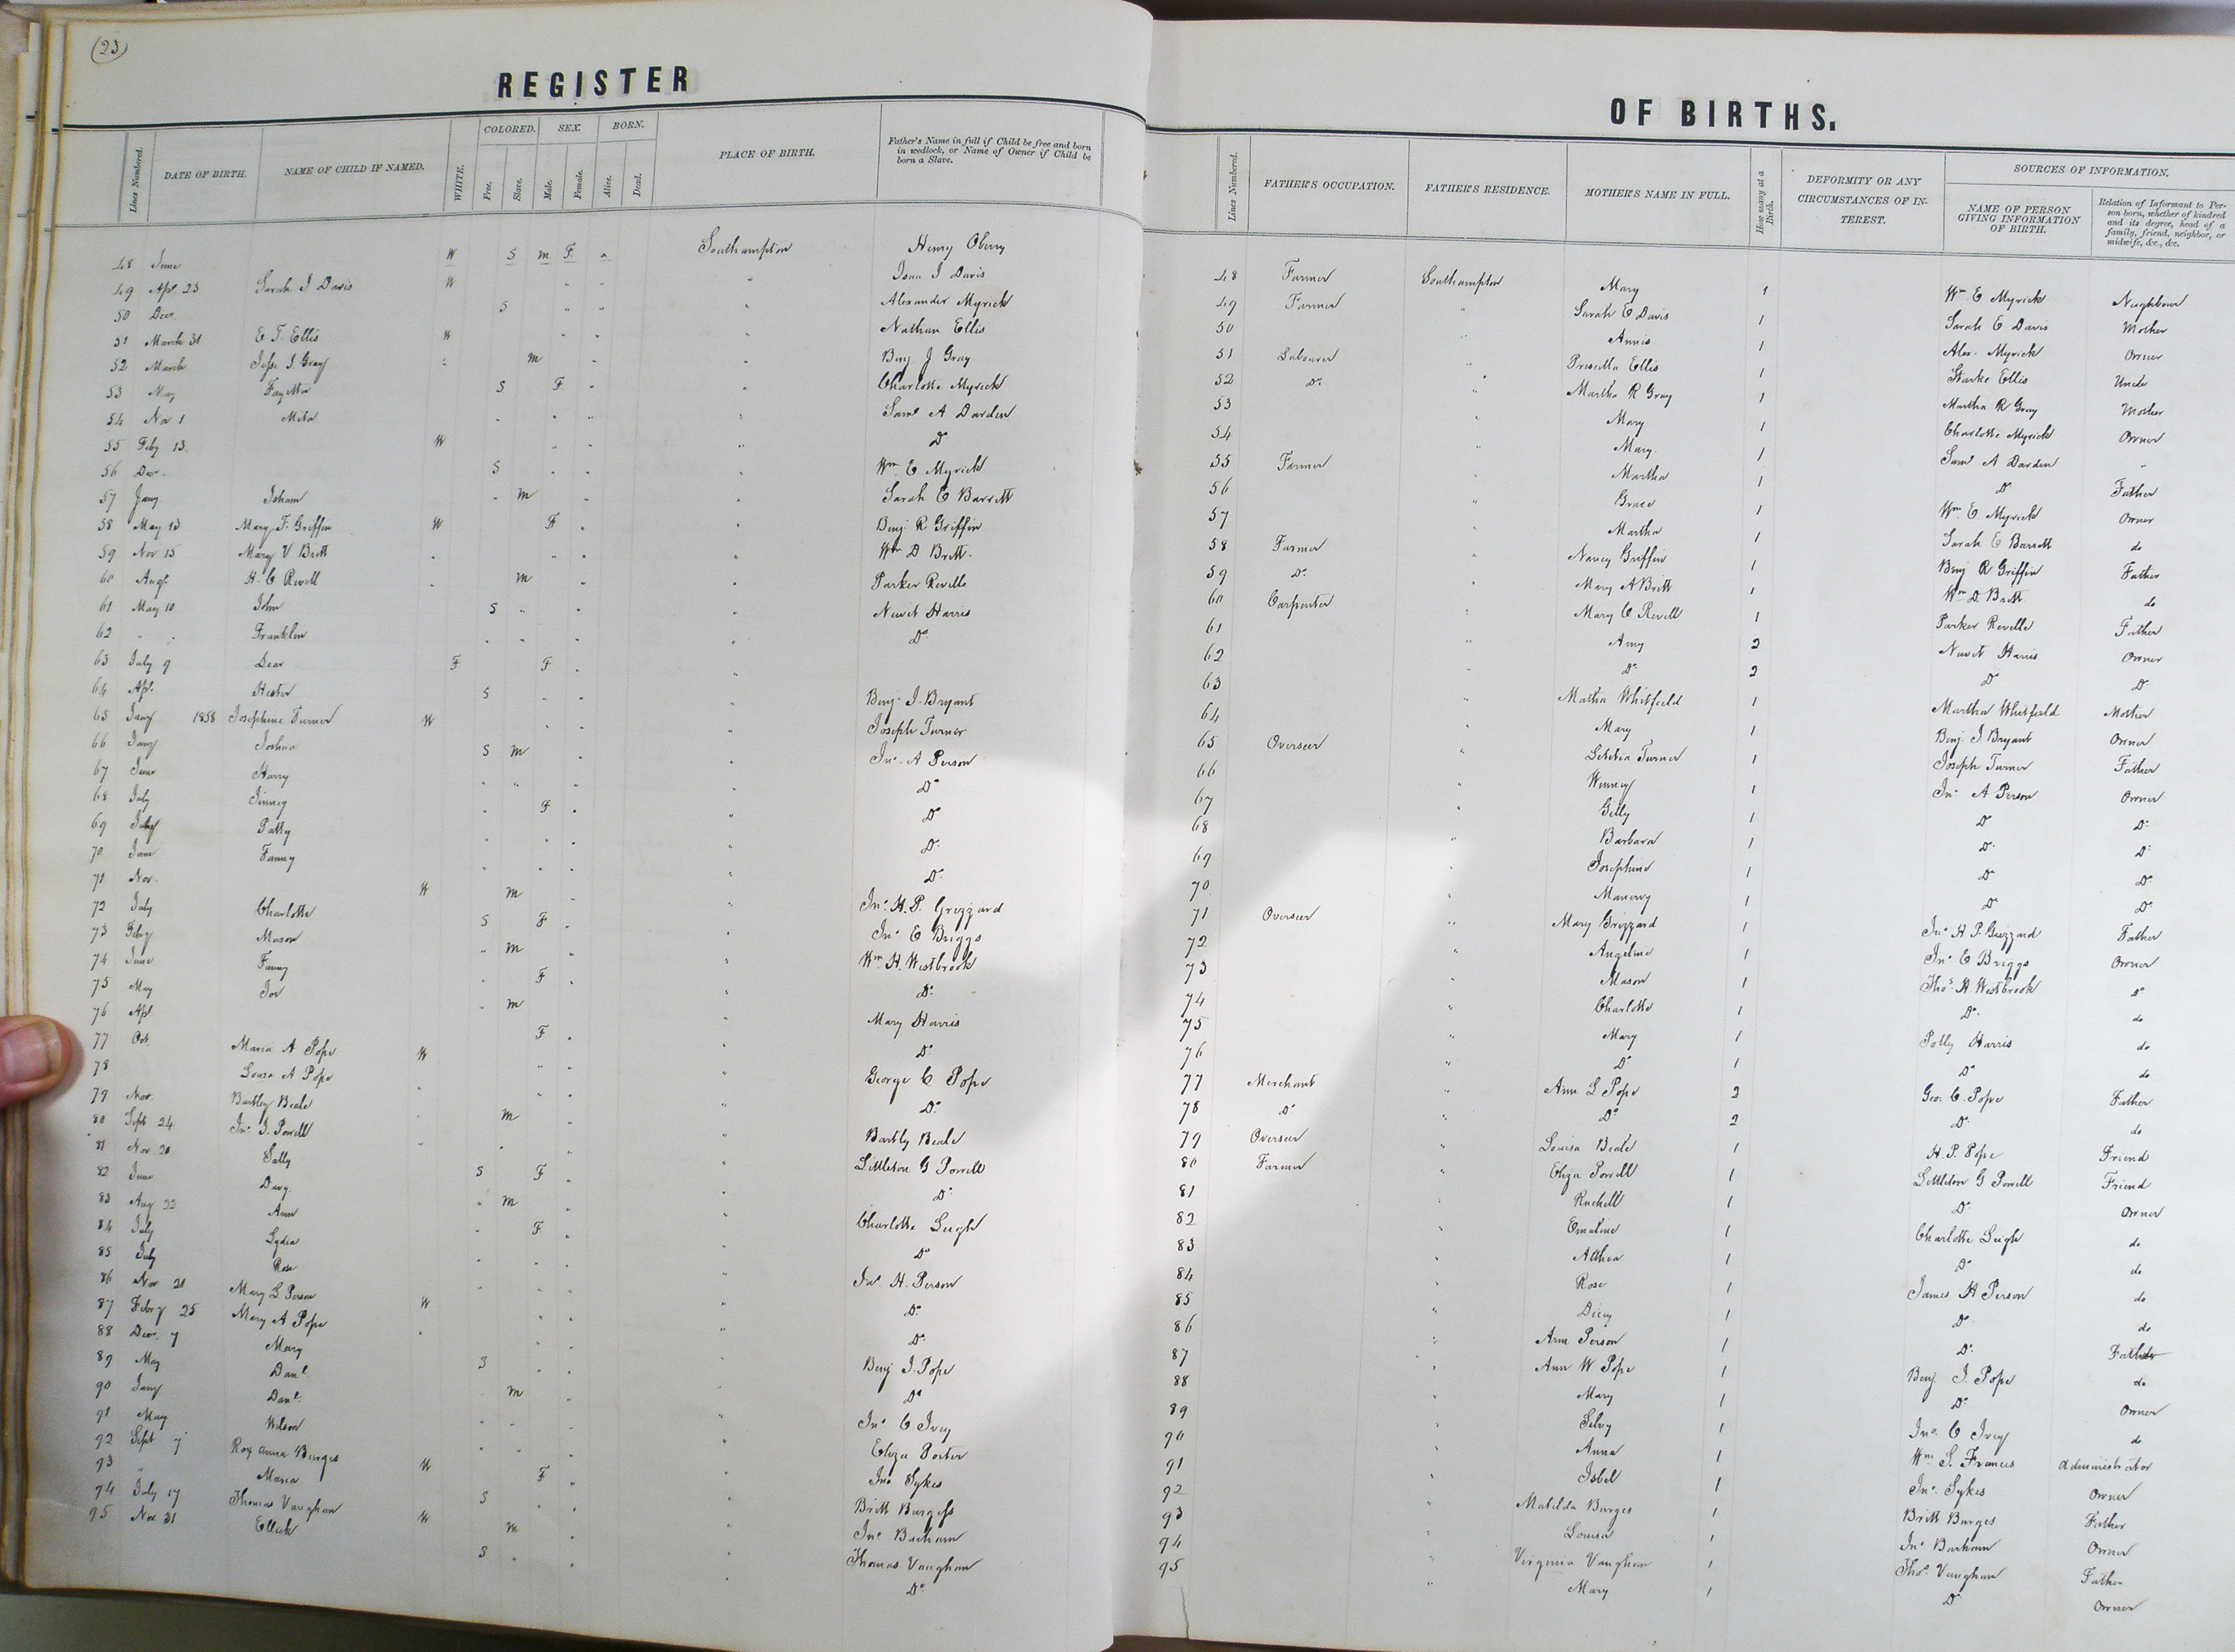 (23)
REGISTER
Lines Numbered. DATE OF BIRTH. NAME OF CHILD IF NAMED. WHITE. COLORED. Free. Slave. SEX. Male. Female. BORN. Alive. Dead. PLACE OF BIRTH. Father's Name in full if Child be free and born in wedlock, or Name of Owner if Child be born a Slave.
48 June W S m F a Southampton Henry Oberry
49 Apl 23 Sarah J Davis W " " " Isaa J Davis
50 Decr S " " " Alexander Myrick
51 March 31 E. T. Ellis W " " " Nathan Ellis
52 March Jesse J. Gray " m " " Benj J Gray
53 May Fayetta S F " " Charlotte Myrick
54 Nov 1 " " " " Saml A Darden
55 Feby 13 W " " " Do
56 Decr S " " " Wm E Myrick
57 Jany Isham " m " " Sarah E Barrett
58 May 13 Mary F. Griffin W F " " Benj R Griffin
59 Nov 15 Mary V Britt " " " " Wm D Britt
60 Augt H. C Revell " m " " Parker Revelle
61 May 10 John S " " " Newit Harris
62 " " Franklin " " " " Do
63 July 9 Dear F F " "
64 Apl. Hester S " " " Benj J. Bryant
65 Jany 1858 Josephine Turner W " " " Joseph Turner
66 Jany Joshua S m " " Jno. A Person
67 June Harry " " " " Do
68 July Jinney " F " " Do
69 July Patty " " " " Do
70 June Fanny " " " " Do
71 Nov. W m " " Jno. H. P. Grizzard
72 July Charlotte S F " " Jno E Briggs
73 Feby Mason " m " " Wm H. Westbrook
74 June Fanny " F " " Do
75 May Joe " m " " Mary Harris
76 Apl F " " Do
77 Oct. Maria A Pope W " " " George C Pope
78 Louisa A Pope " " " " Do
79 Nov. Bartley Beale " m " " Bartly Beale
80 Sept 24 Jno. J. Powell " " " " Littleton G Powell
81 Nov 20 Sally S F " " Do
82 June Davy " m " " Charlotte Leigh
83 Aug 22 Ann " F " " Do
84 July Lydia " " " " H. Person
85 July Rose " " " " Do
86 Nov 21 Mary L Person W " " " Do
87 Feby 25 Mary A Pope " " " " Benj J. Pope
88 Decr 7 Mary S " " " Do
89 May Danl. m " " Jno C Ivey
90 Jany Danl. " " " Eliza Porter
91 May Wilson " " " " Jno Sykes
92 Sept 7 Rox anna Burges W F " " Britt Burgess
93 " Maria S " " " Jno Barham
94 July 17 Thomas Vaughan W m " " Thomas Vaughan
95 Nov 31 Ellick S " " " Do
OF BIRTHS.
Lines Numbered. FATHER'S OCCUPATION. FATHER'S RESIDENCE. MOTHER'S NAME IN FULL. How many at a Birth. DEFORMITY OR ANY CIRCUMSTANCES OF INTEREST. SOURCES OF INFORMATION. NAME OF PERSON GIVING INFORMATION OF BIRTH. Relation of Informant to Person born, whether of kindred and its degree, head of a family, friend, neighbor, or midwife, &c., &c.
48 Farmer Southampton Mary 1 Wm E Myrick Neighbour
49 Farmer " Sarah E Davis 1 Sarah E Davis Mother
50 " Annis 1 Alex. Myrick Owner
51 Labourer " Priscilla Ellis 1 Starke Ellis Uncle
52 Do " Martha R Gray 1 Martha R Gray Mother
53 " Mary 1 Charlotte Myrick Owner
54 " Mary 1 Saml A Darden "
55 Farmer " Martha 1 Do Father
56 " Grace 1 Wm E Myrick Owner
57 " Martha 1 Sarah E Barrett do
58 Farmer " Nancy Griffin 1 Benj R Griffin Father
59 Do " Mary A Britt 1 Wm D Britt do
60 Carpenter " Mary C Revell 1 Parker Revelle Father
61 " Amy 2 Newit Harris Owner
62 " Do 2 Do Do
63 " Matha Whitfield 1 Martha Whitfield Mother
64 " Mary 1 Benj J Bryant Owner
65 Overseer " Letitia Turner 1 Joseph Turner Father
66 " Winney 1 Jno A Person Owner
67 " Gilly 1 Do Do
68 " Barbara 1 Do Do
69 " Josephine 1 Do Do
70 " Manervy 1 Do Do
71 Overseer " Mary Grizzard 1 Jno H P. Grizzard Father
72 " Angeline 1 Jno E Briggs Owner
73 " Mason 1 Thos H Westbrook Do
74 " Charlotte 1 Do do
75 " Mary 1 Polly Harris do
76 " Do 1 Do do
77 Merchant " Ann L Pope 2 Geo. C. Pope Father
78 Do " Do 2 Do do
79 Overseer " Louisa Beale 1 H. P. Pope Friend
80 Farmer " Eliza Powell 1 Littleton G Powell Friend
81 " Rachell 1 Do Owner
82 " Emaline 1 Charlotte Leigh do
83 " Althea 1 Do do
84 " Rose 1 James H Person do
85 " Dicey 1 Do do
86 " Ann Person 1 Do Father
87 " Ann W Pope 1 Benj. J. Pope do
88 " Mary 1 Do Owner
89 " Silvy 1 Jno. C Ivey do
90 " Anna 1 Wm S. Frances Administrator
91 " Isbel 1 Jno. Sykes Owner
92 " Matilda Burges 1 Britt Burges Father
93 " Louisa 1 Jno Barham Owner
94 " Virginia Vaughan 1 Thos. Vaughan Father
95 " Mary 1 Do Owner